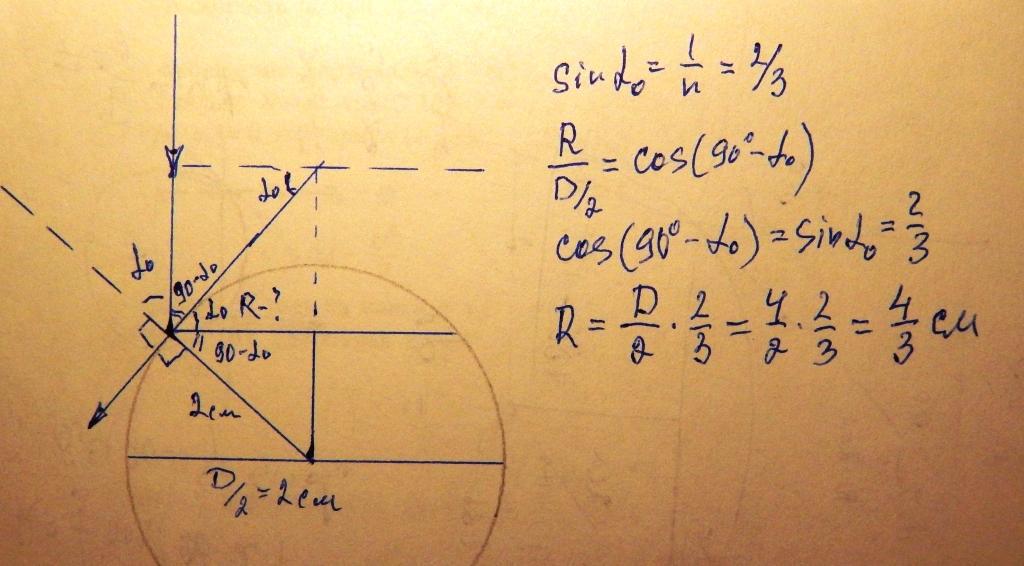 sin α₀ = 1/n = 2/3
R / D/2 = cos(90° - α₀)
cos(90° - α₀) = sin α₀ = 2/3
R = D/2 · 2/3 = 4/2 · 2/3 = 4/3 см
α₀
α₀
90-α₀
α₀ R-?
90-α₀
2см
D/2 = 2см